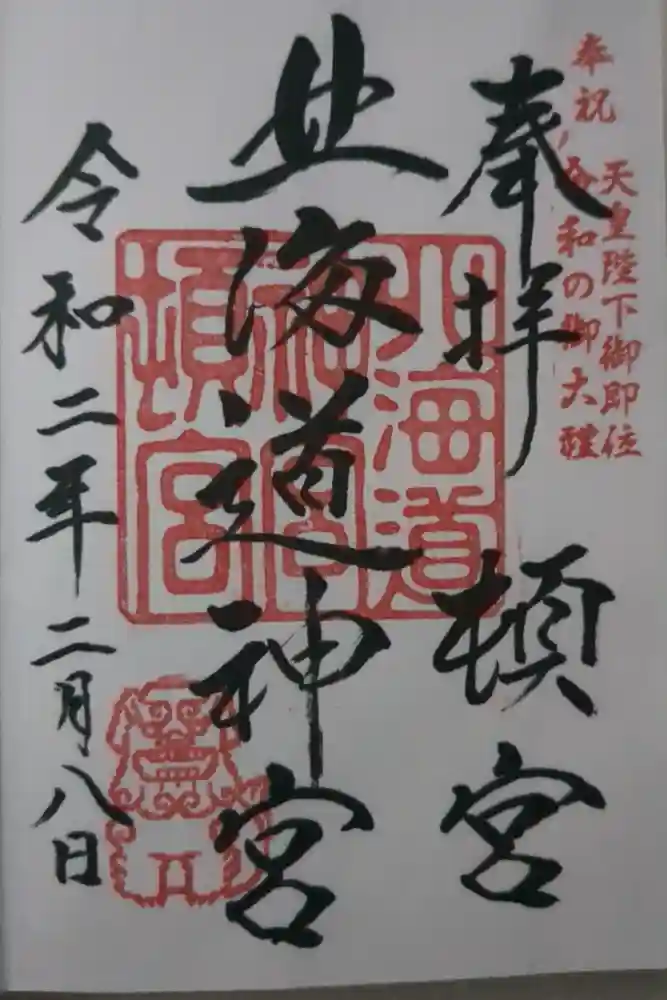 奉祝 令和の御大禮
天皇陛下御即位
奉拝 頓宮
北海道神宮
北海道
神宮
頓宮
令和二年二月八日